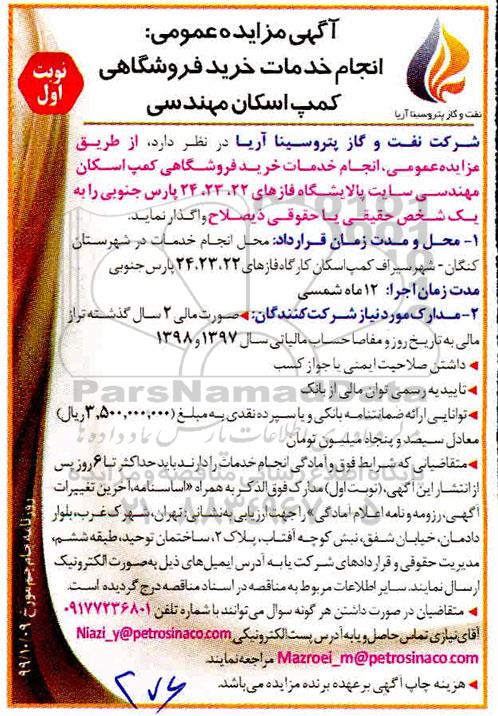 آگهی مزایده عمومی:
انجام خدمات خرید فروشگاهی
کمپ اسکان مهندسی
نوبت
اول
نفت و گاز پتروسینا آریا
شرکت نفت و گاز پتروسینا آریا در نظر دارد، از طریق
مزایده عمومی، انجام خدمات خرید فروشگاهی کمپ اسکان
مهندسی سایت پالایشگاه فازهای ۲۲، ۲۳، ۲۴ پارس جنوبی را به
یک شخص حقیقی یا حقوقی ذیصلاح واگذار نماید.
۱- محل و مدت زمان قرارداد: محل انجام خدمات در شهرستان
کنگان - شهر سیراف کمپ اسکان کارگاه فازهای ۲۲، ۲۳، ۲۴ پارس جنوبی
مدت زمان اجرا: ۱۲ ماه شمسی
۲- مدارک مورد نیاز شرکت کنندگان: ◄ صورت مالی ۲ سال گذشته تراز
مالی به تاریخ روز و مفاصا حساب مالیاتی سال ۱۳۹۷ و ۱۳۹۸
◄ داشتن صلاحیت ایمنی یا جواز کسب
◄ تاییدیه رسمی توان مالی از بانک
◄ توانایی ارائه ضمانتنامه بانکی و یا سپرده نقدی به مبلغ (۳,۵۰۰,۰۰۰,۰۰۰ ریال)
معادل سیصد و پنجاه میلیون تومان
◄ متقاضیانی که شرایط فوق و آمادگی انجام خدمات را دارند باید حداکثر تا ۶ روز پس
از انتشار این آگهی، (نوبت اول) مدارک فوق الذکر به همراه «اساسنامه، آخرین تغییرات
آگهی، رزومه و نامه اعلام آمادگی» را جهت ارزیابی به نشانی: تهران، شهرک غرب، بلوار
دادمان، خیابان شفق، نبش کوچه آفتاب، پلاک ۲، ساختمان توحید، طبقه ششم،
مدیریت حقوقی و قراردادهای شرکت یا به آدرس ایمیل‌های ذیل به صورت الکترونیک
ارسال نمایند. سایر اطلاعات مربوط به مناقصه در اسناد مناقصه درج گردیده است.
◄ متقاضیان در صورت داشتن هر گونه سوال می‌توانند با شماره تلفن ۰۹۱۷۷۲۳۶۸۰۱
آقای نیازی تماس حاصل و یا به آدرس پست الکترونیکی Niazi_y@petrosinaco.com
Mazroei_m@petrosinaco.com مراجعه نمایند.
◄ هزینه چاپ آگهی بر عهده برنده مزایده می‌باشد.
۲۷۶
روزنامه جام جم مورخ ۹۹/۱۰/۰۹
ParsNamadData